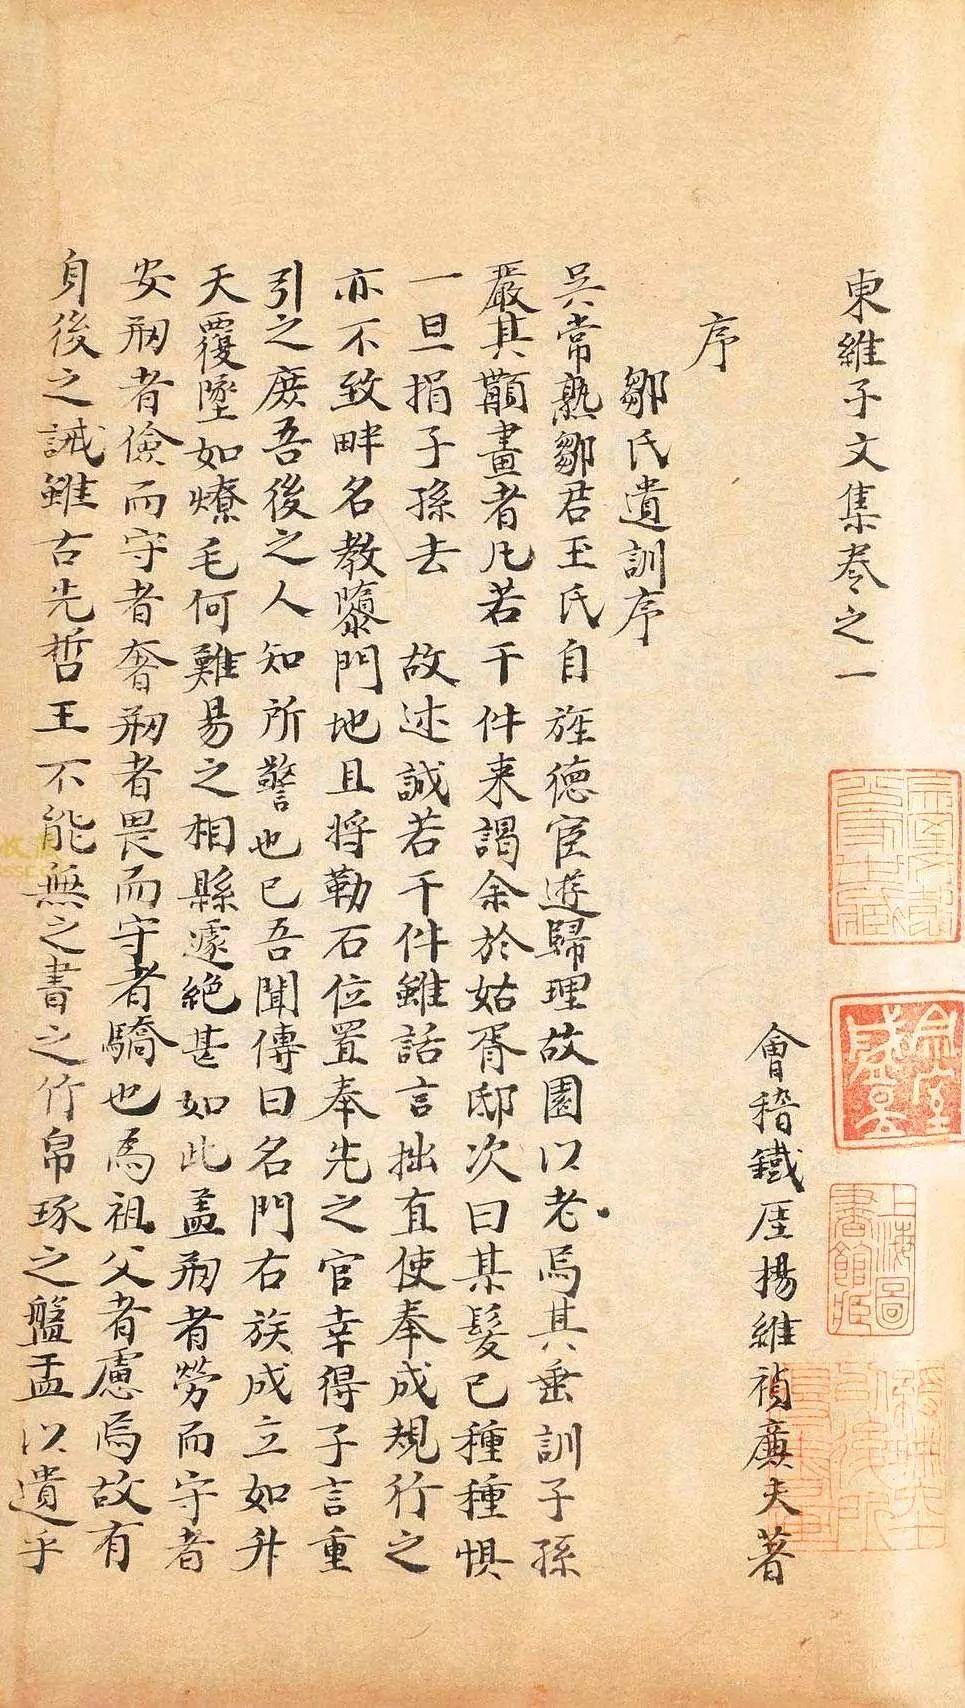 東維子文集卷之一
會稽鐵厓楊維禎廉夫著
序
鄒氏遺訓序
吳常熟鄒君玉氏自旌德宦遊歸理故園以老焉其垂訓子孫
嚴其顓畫者凡若干件来謁余於姑胥邸次曰某髮已種種惧
一旦捐子孫去 故述誡若干件雖話言拙直使奉成規行之
亦不致畔名教隳門地且将勒石位置奉先之官幸得子言重
引之庶吾後之人知所警也已吾聞傳曰名門右族成立如升
天覆墜如燎毛何難易之相縣遼絶甚如此盖剏者勞而守者
安剏者儉而守者奢剏者畏而守者驕也為祖父者慮焉故有
身後之誡雖古先哲王不能無之書之竹帛琢之盤盂以遺乎
上海圖
書館藏